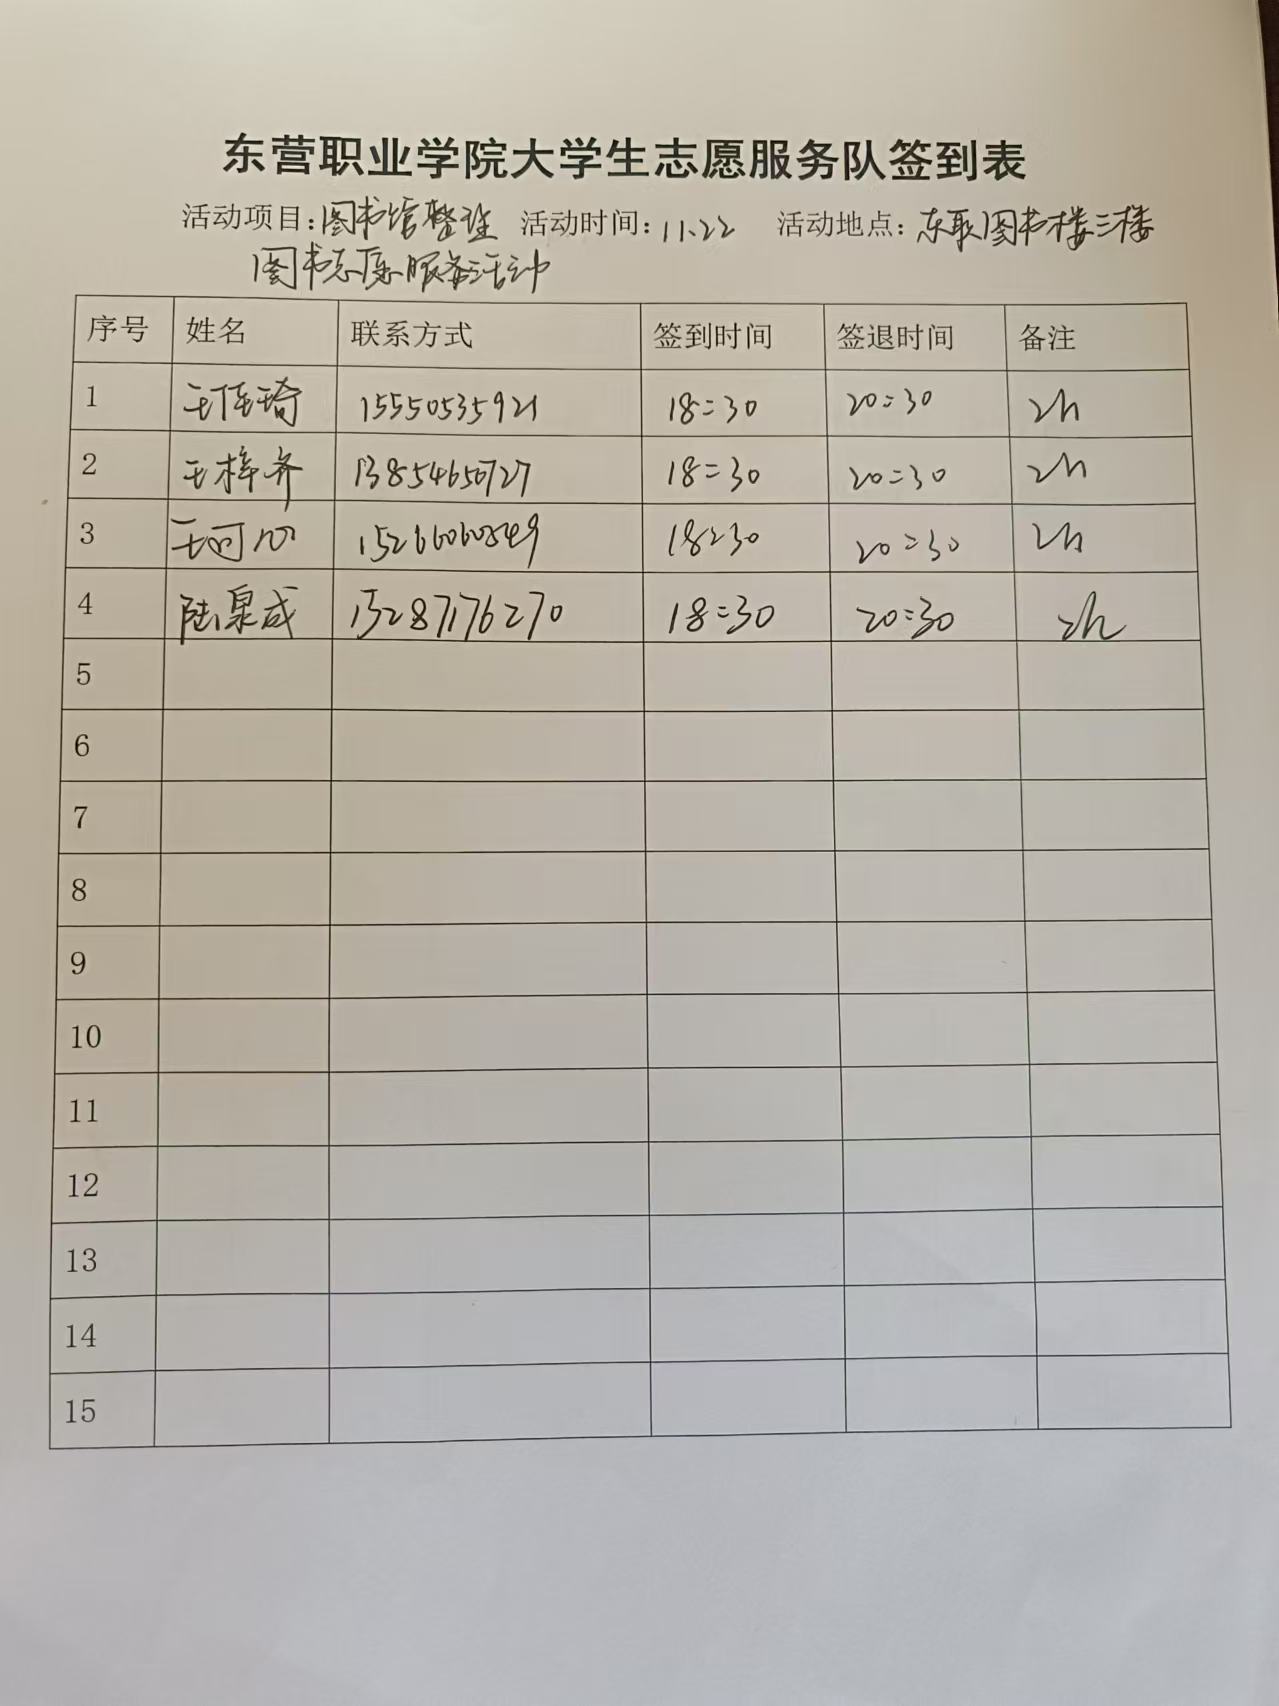 东营职业学院大学生志愿服务队签到表
活动项目:图书馆整理 活动时间:11.22 活动地点:东职图书楼三楼
图书志愿服务活动
序号 姓名 联系方式 签到时间 签退时间 备注
1 王佳琦 15550535921 18:30 20:30 2h
2 王梓齐 13854650727 18:30 20:30 2h
3 王可心 15266060849 18:30 20:30 2h
4 陆泉成 15287176270 18:30 20:30 2h
5
6
7
8
9
10
11
12
13
14
15